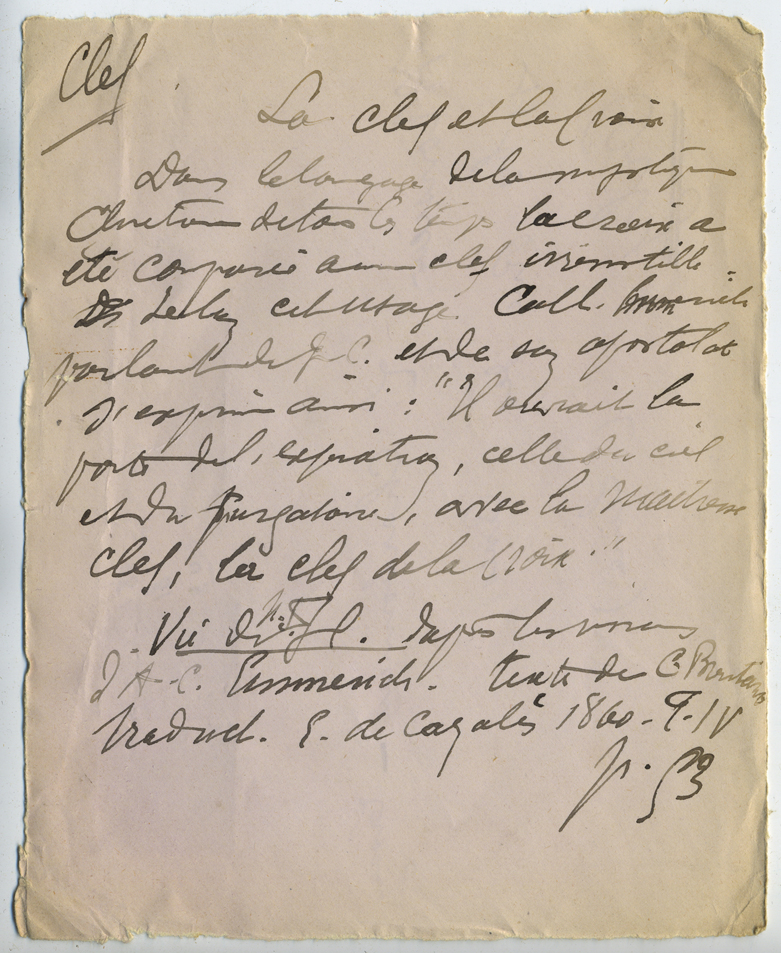 Clef
La clef et la Croix
Dans le langage de la mystique
Chretienne de tous les temps la croix a
été comparée a une clef irrésistible.
Selon cet usage Cath. Emmerich
parlant de J. C. et de son apostolat
s'exprime ainsi : "Il ouvrait la
porte de l'expiation, celle du ciel
et du purgatoire, avec la maitresse
clef, la clef de la Croix."
Vie de N. S. J. C. d'après les visions
d'A-C. Emmerich. texte de C. Brentano
traduct. E. de Cazalès 1860. T. IV
p. 53